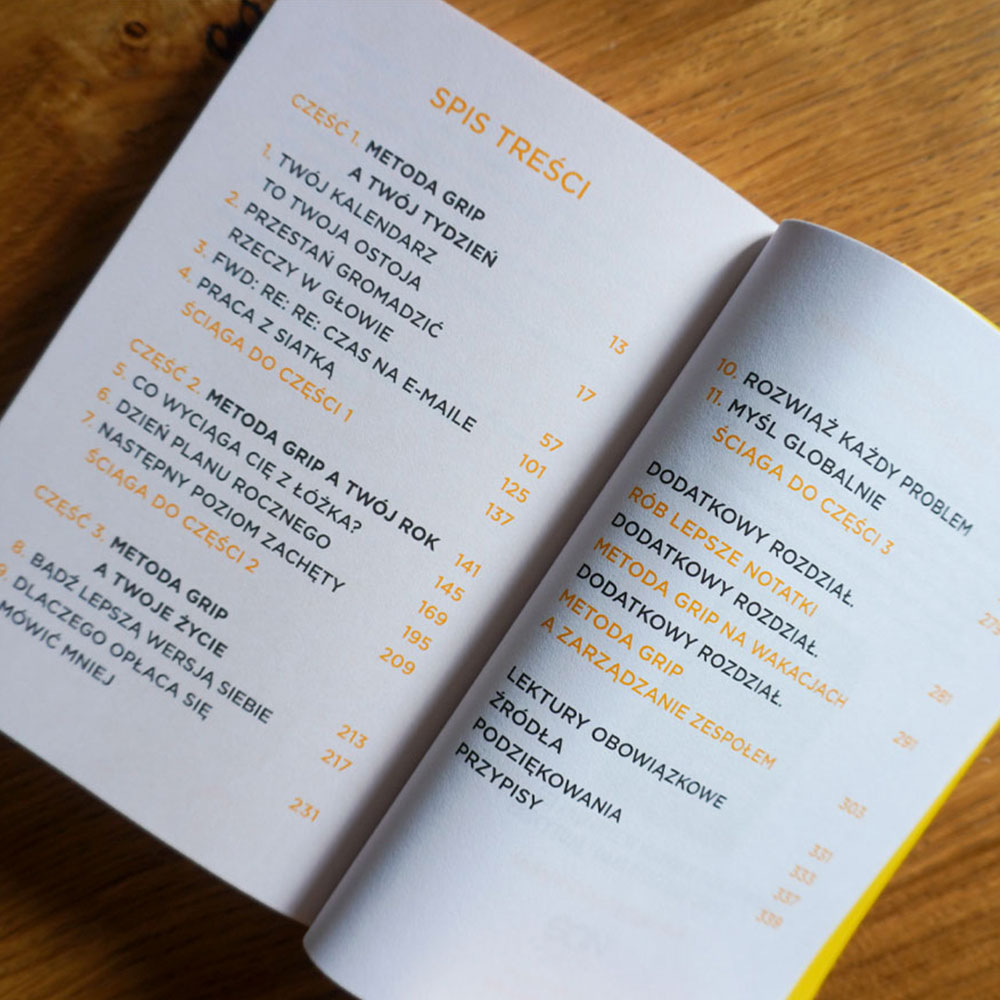 SPIS TREŚCI
CZĘŚĆ 1. METODA GRIP
A TWÓJ TYDZIEŃ 13
1. TWÓJ KALENDARZ
TO TWOJA OSTOJA 17
2. PRZESTAŃ GROMADZIĆ
RZECZY W GŁOWIE 57
3. FWD: RE: RE: CZAS NA E-MAILE 101
4. PRACA Z SIATKĄ 125
ŚCIĄGA DO CZĘŚCI 1 137
CZĘŚĆ 2. METODA GRIP A TWÓJ ROK 141
5. CO WYCIĄGA CIĘ Z ŁÓŻKA? 145
6. DZIEŃ PLANU ROCZNEGO 169
7. NASTĘPNY POZIOM ZACHĘTY 195
ŚCIĄGA DO CZĘŚCI 2 209
CZĘŚĆ 3. METODA GRIP
A TWOJE ŻYCIE 213
8. BĄDŹ LEPSZĄ WERSJĄ SIEBIE 217
9. DLACZEGO OPŁACA SIĘ
MÓWIĆ MNIEJ 231
10. ROZWIĄŻ KAŻDY PROBLEM
11. MYŚL GLOBALNIE
ŚCIĄGA DO CZĘŚCI 3
DODATKOWY ROZDZIAŁ.
RÓB LEPSZE NOTATKI 281
DODATKOWY ROZDZIAŁ.
METODA GRIP NA WAKACJACH 291
DODATKOWY ROZDZIAŁ.
METODA GRIP
A ZARZĄDZANIE ZESPOŁEM 303
LEKTURY OBOWIĄZKOWE 331
ŹRÓDŁA 333
PODZIĘKOWANIA 337
PRZYPISY 339